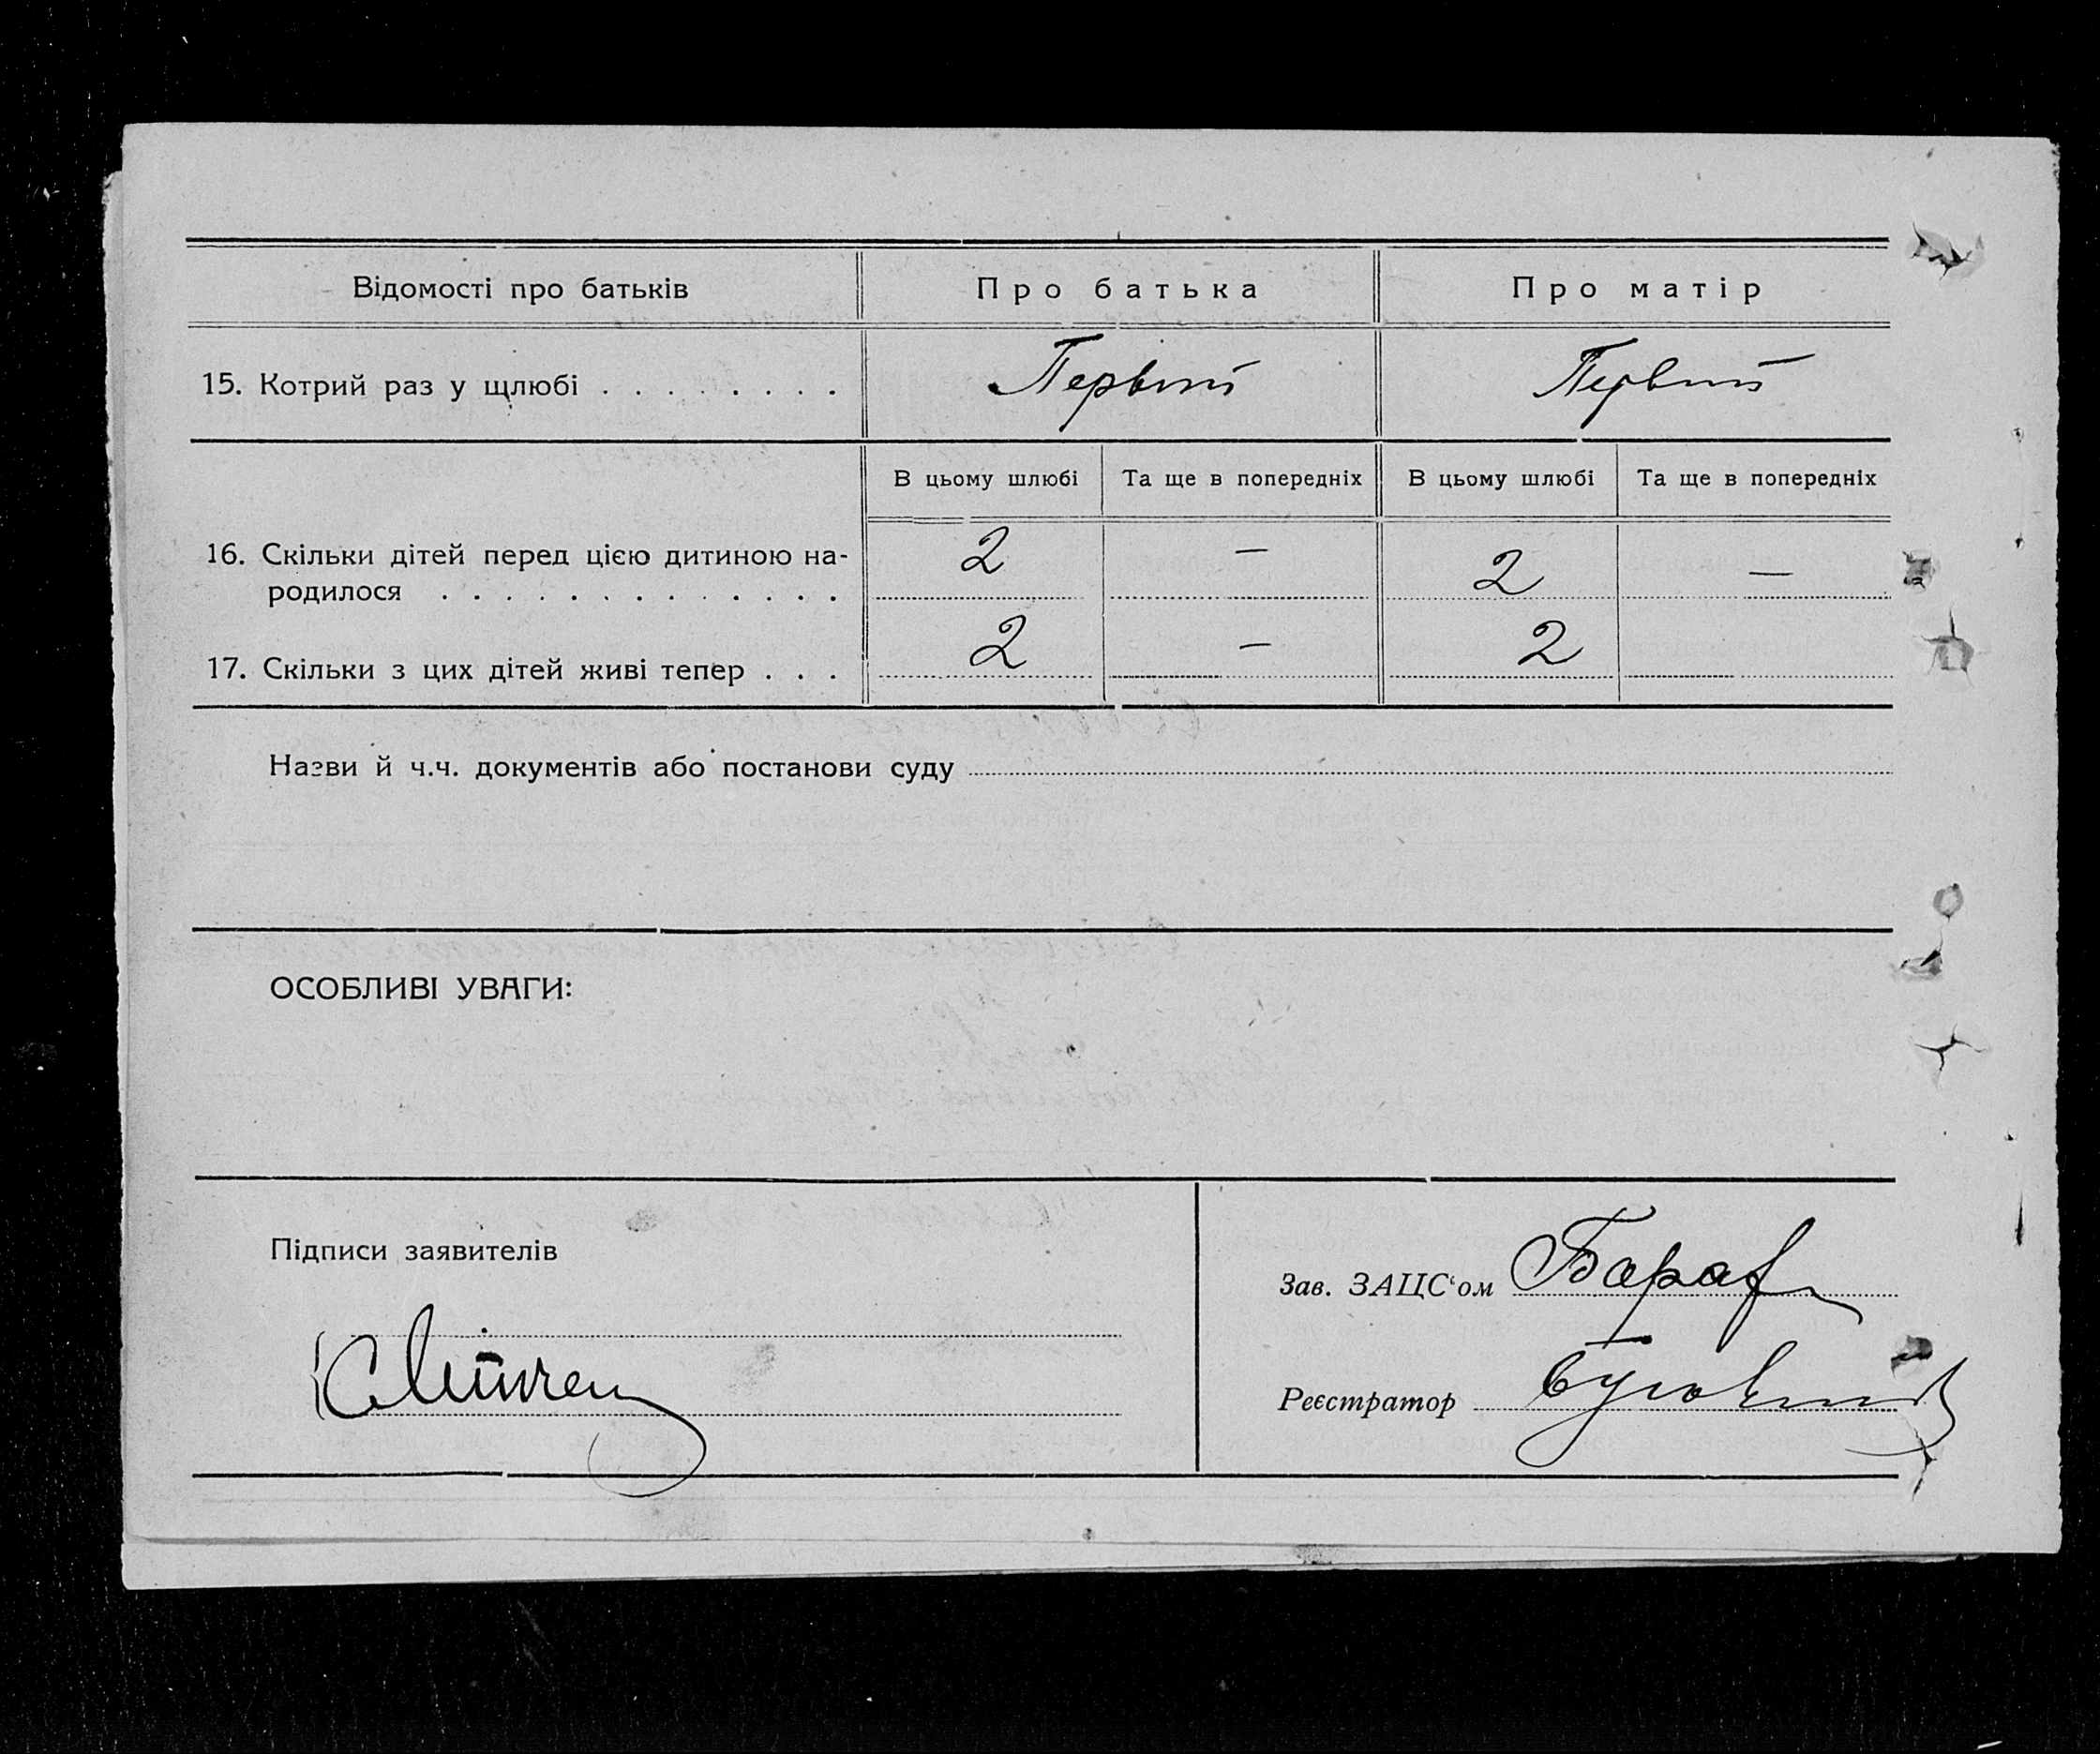 Відомості про батьків Про батька Про матір
15. Котрий раз у щлюбі . . . . . . . . Первый Первый
В цьому шлюбі Та ще в попередніх В цьому шлюбі Та ще в попередніх
16. Скільки дітей перед цією дитиною на- 2 — 2 —
родилося . . . . . . . . . . . . .
17. Скільки з цих дітей живі тепер . . . 2 — 2
Назви й ч.ч. документів або постанови суду
ОСОБЛИВІ УВАГИ:
Підписи заявителів
Зав. ЗАЦС‘ом
Реєстратор